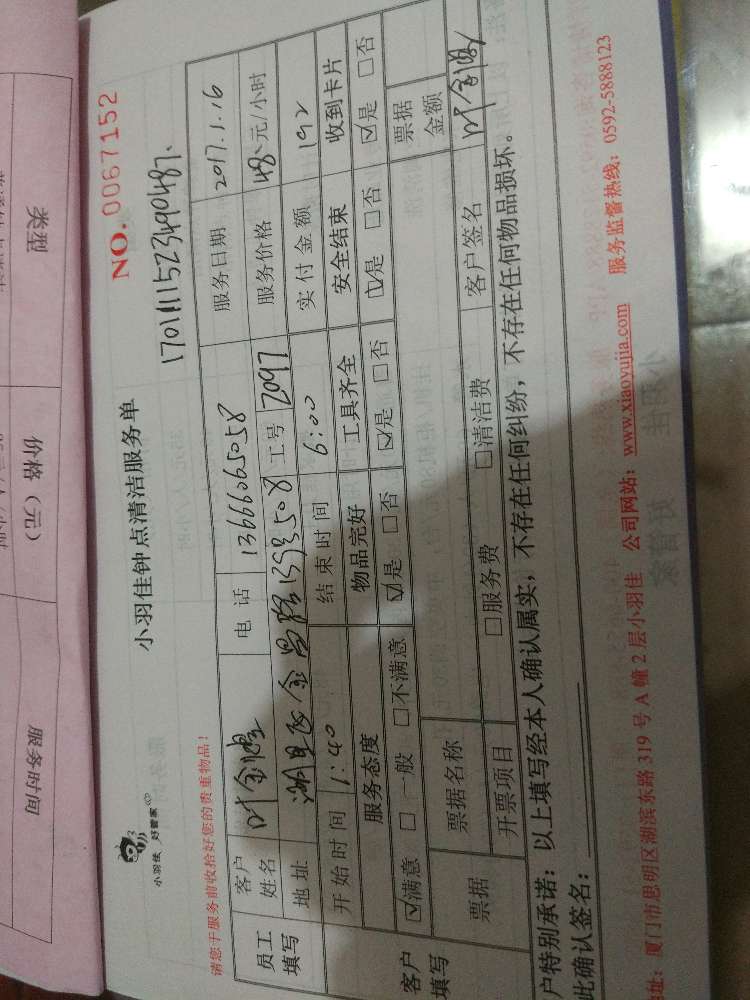 类型
价格（元）
服务时间
小羽佳 好管家
小羽佳钟点清洁服务单
NO. 0067152
请您于服务前收拾好您的贵重物品！
员工填写
客户姓名
电话 13666065058
服务日期 2017.1.16
地址
工号 2097
服务价格 48元/小时
开始时间 1:40
结束时间 6:00
实付金额 192
客户填写
服务态度 物品完好 工具齐全 安全结束 收到卡片
☑满意 □一般 □不满意 ☑是 □否 ☑是 □否 ☑是 □否 ☑是 □否
票据
票据名称
票据金额
开票项目 □服务费 □清洁费
客户签名
户特别承诺：以上填写经本人确认属实，不存在任何纠纷，不存在任何物品损坏。
此确认签名：
址：厦门市思明区湖滨东路319号A幢2层小羽佳 公司网站：www.xiaoyujia.com 服务监督热线：0592-5888123